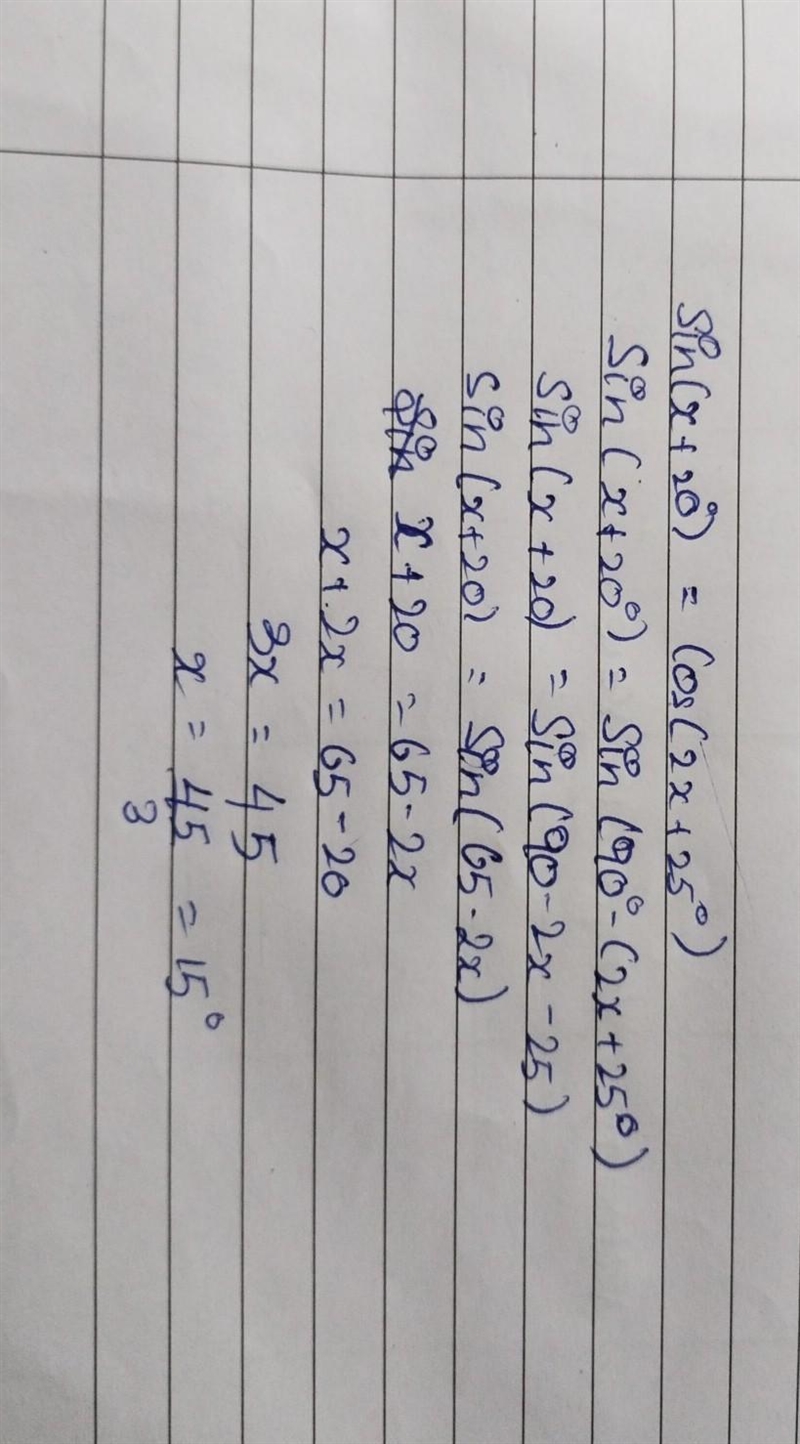 sin(x+20°) = Cos(2x+25°)
Sin(x+20°) = Sin(90°-(2x+25°)
Sin(x+20) = Sin(90-2x-25)
Sin(x+20) = Sin(65-2x)
x+20 = 65-2x
x+2x = 65-20
3x = 45
x = 45/3 = 15°